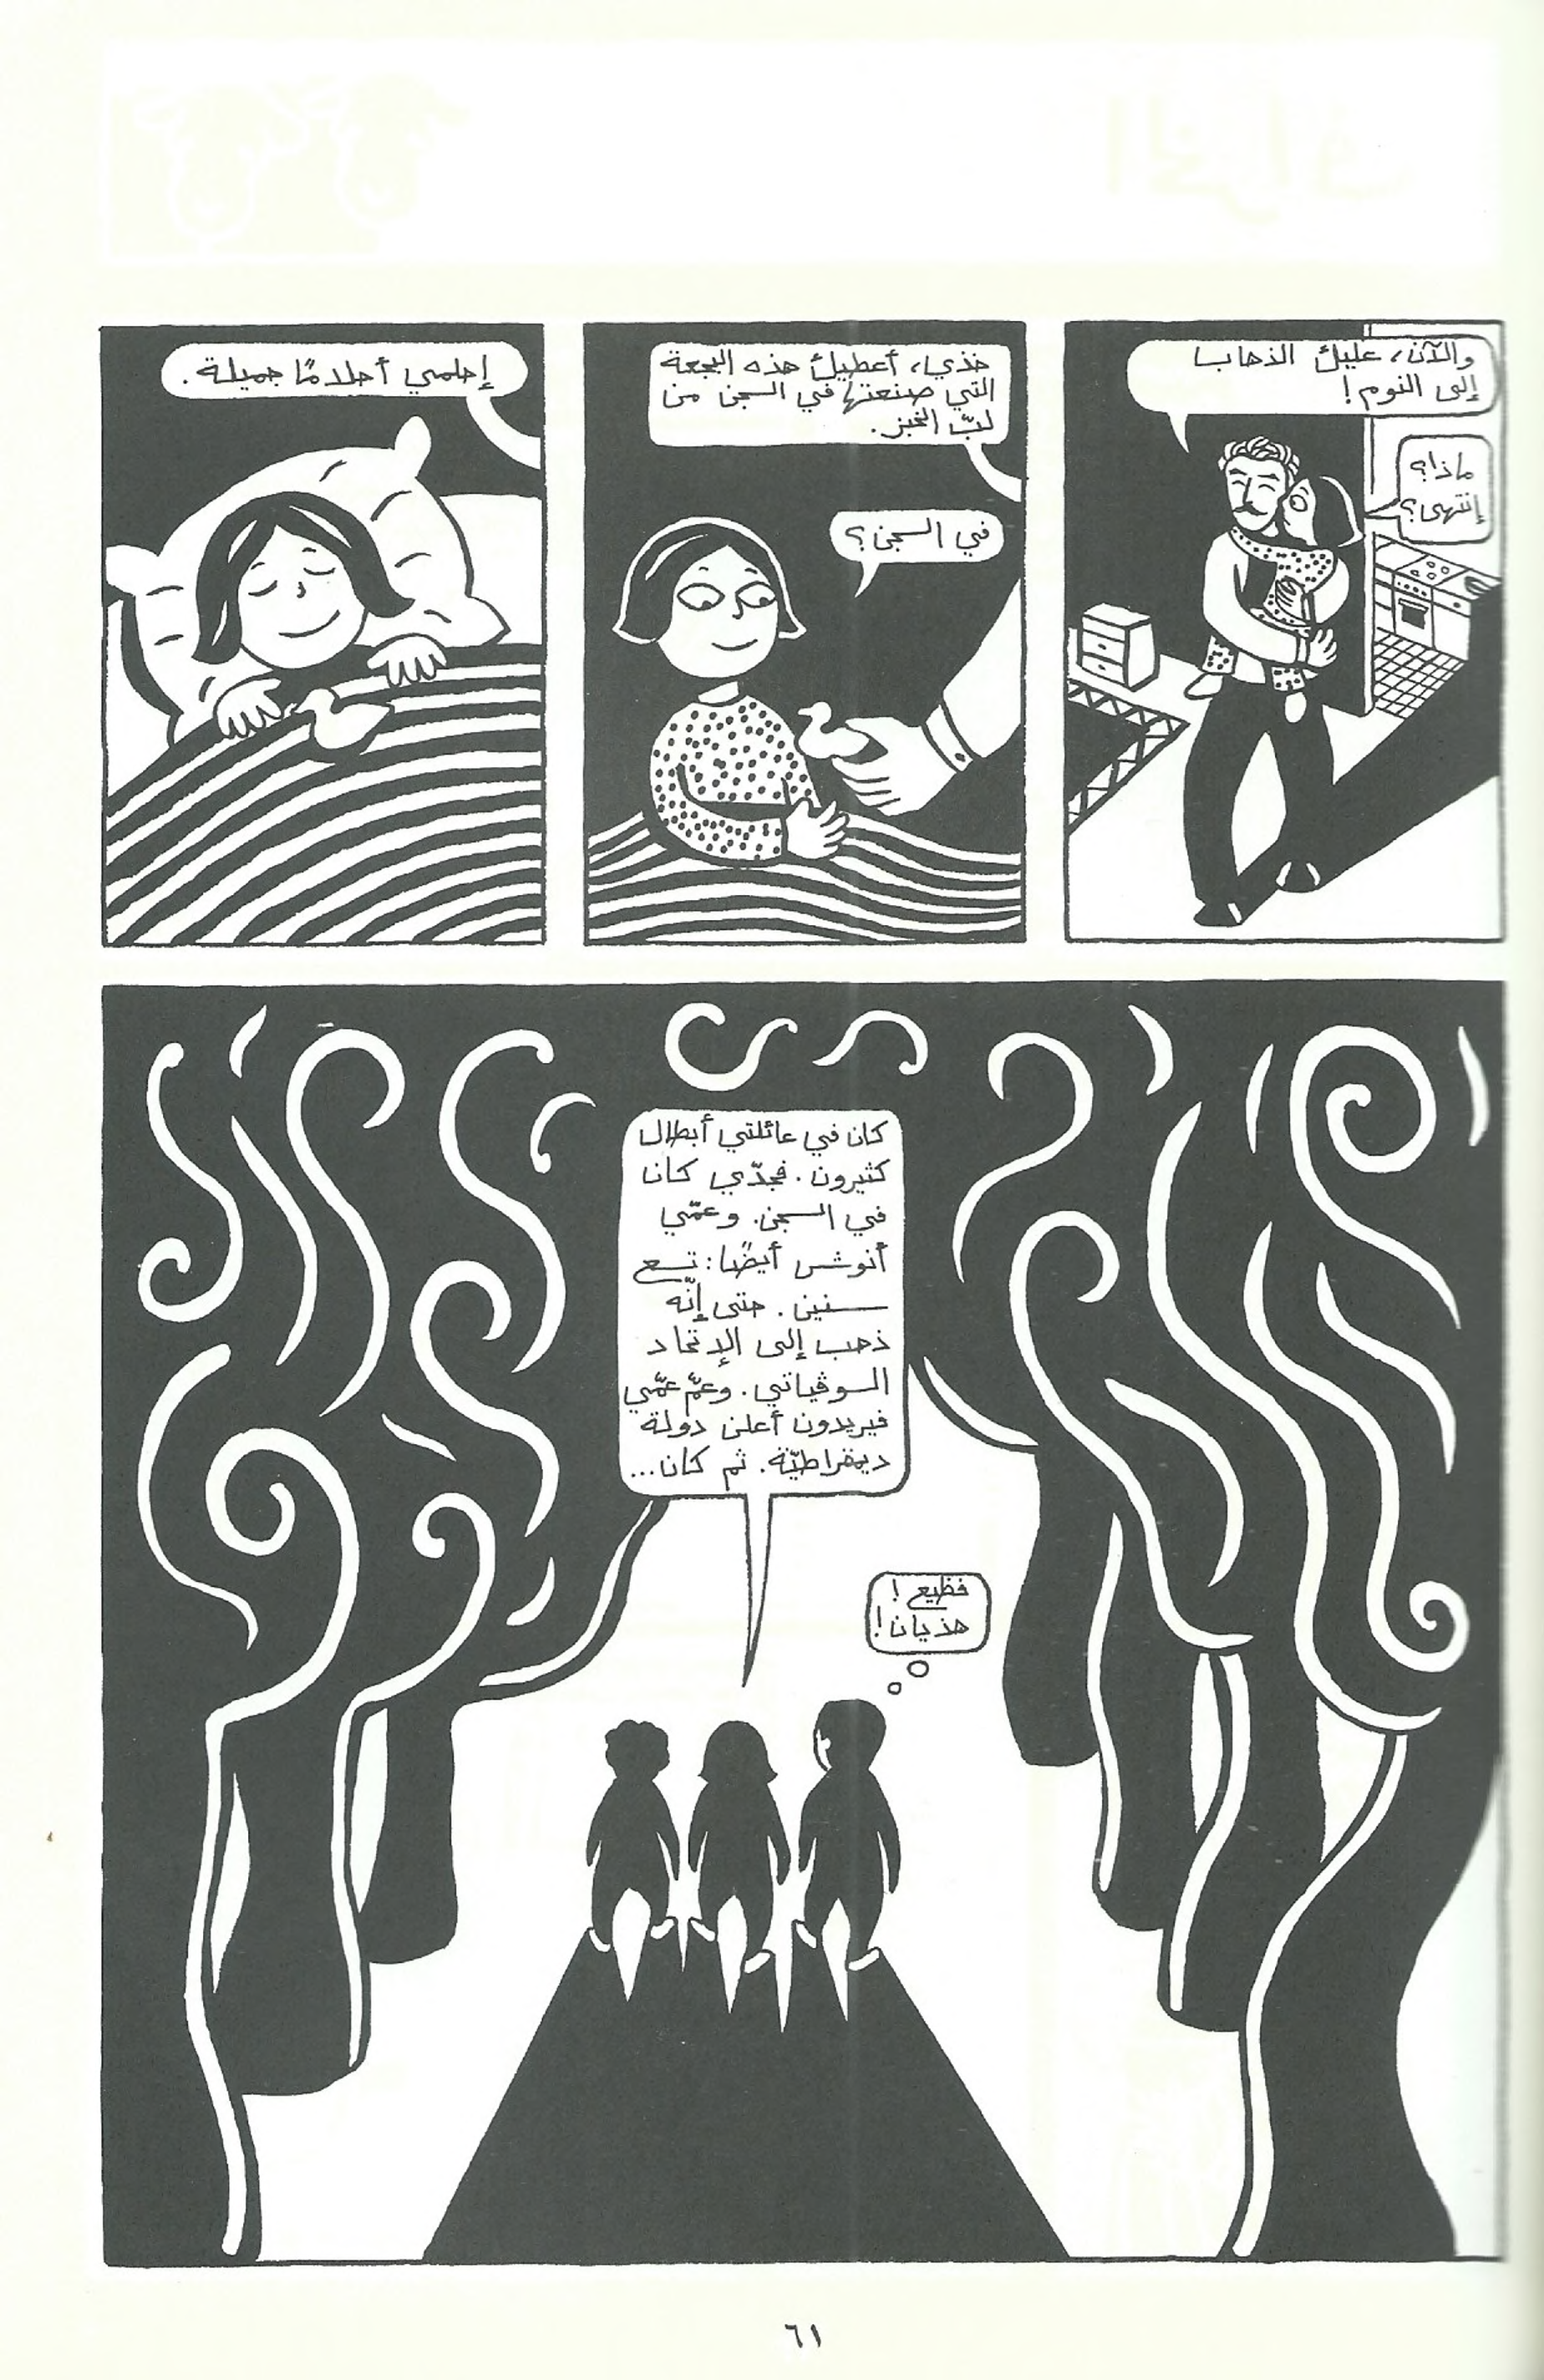 والآن، عليكِ الذهاب
إلى النوم!
ماذا؟
إنتهى؟
خذي، أعطيكِ هذه البجعة
التي صنعتها في السجن من
لبّ الخبز.
في السجن؟
إحلمي أحلامًا جميلة.
كان في عائلتي أبطال
كثيرون. فجدّي كان
في السجن. وعمّي
أنوش أيضًا: تسع
سنين. حتى إنّه
ذهب إلى الإتحاد
السوڤياتي. وعمّ عمّي
فيريدون أعلن دولة
ديمقراطيّة. ثم كان...
فظيع!
هذيان!
٦١